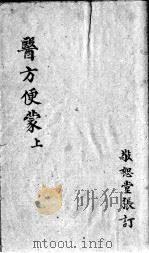 醫方便蒙上
敬恕堂張訂
www.toouu.info